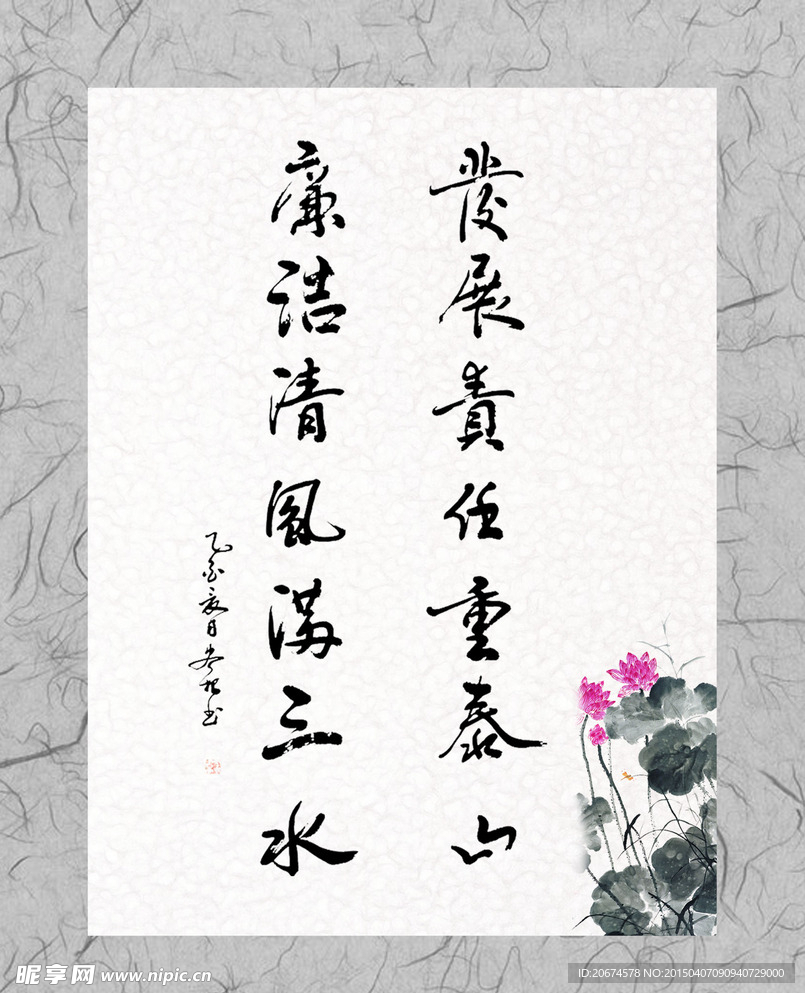 發展責任重泰山
廉洁清風满三水
昵享网 www.nipic.cn
ID:20674578 NO:20150407090940729000